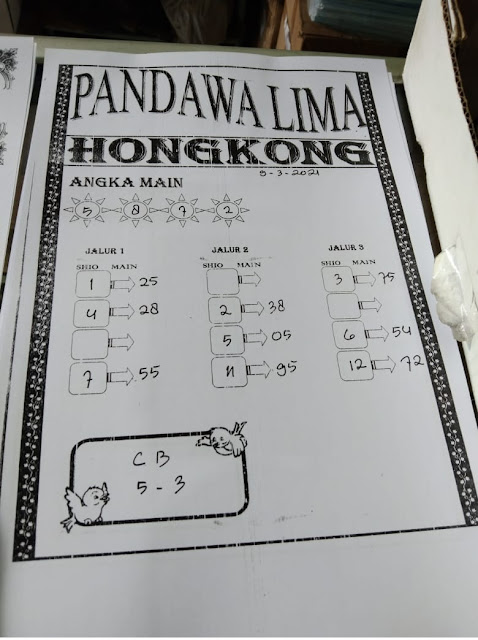 PANDAWA LIMA
HONGKONG
9-3-2021
ANGKA MAIN
5 8 7 2
JALUR 1 JALUR 2 JALUR 3
SHIO MAIN SHIO MAIN SHIO MAIN
1 25 3 75
4 28 2 38
5 05 6 54
7 55 11 95 12 72
CB
5 - 3